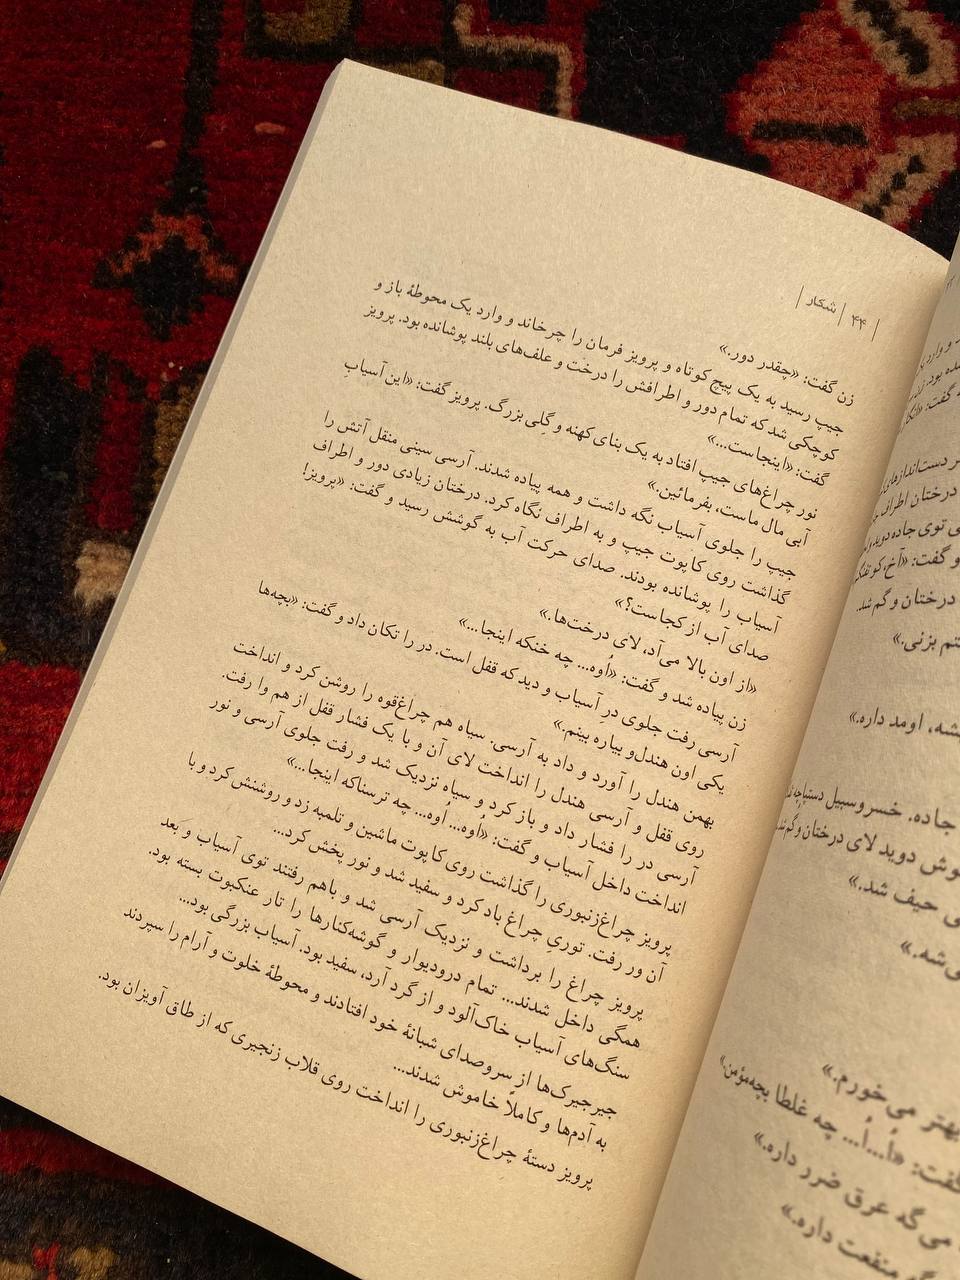 | ۴۴ | شکار |
زن گفت: «چقدر دور.»
جیپ رسید به یک پیچ کوتاه و پرویز فرمان را چرخاند و وارد یک محوطهٔ باز و
کوچکی شد که تمام دور و اطرافش را درخت و علف‌های بلند پوشانده بود. پرویز
گفت: «اینجاست...»
نور چراغ‌های جیپ افتاد به یک بنای کهنه و گِلی بزرگ. پرویز گفت: «این آسیابِ
آبی مال ماست، بفرمائین.»
جیپ را جلوی آسیاب نگه داشت و همه پیاده شدند. آرسی سینی منقل آتش را
گذاشت روی کاپوت جیپ و به اطراف نگاه کرد. درختان زیادی دور و اطراف
آسیاب را پوشانده بودند. صدای حرکت آب به گوشش رسید و گفت: «پرویز!
صدای آب از کجاست؟»
«از اون بالا می‌آد، لای درخت‌ها.»
زن پیاده شد و گفت: «اُوه... چه خنکه اینجا...»
آرسی رفت جلوی درِ آسیاب و دید که قفل است. در را تکان داد و گفت: «بچه‌ها
یکی اون هندل‌و بیاره بینم.»
بهمن هندل را آورد و داد به آرسی. سیاه هم چراغ‌قوه را روشن کرد و انداخت
روی قفل و آرسی هندل را انداخت لای آن و با یک فشار قفل از هم وا رفت.
آرسی در را فشار داد و باز کرد و سیاه نزدیک شد و رفت جلوی آرسی و نور
انداخت داخل آسیاب و گفت: «اُوه... اُوه... چه ترسناکه اینجا...»
پرویز چراغ‌زنبوری را گذاشت روی کاپوت ماشین و تلمبه زد و روشنش کرد و با
آن ور رفت. توریِ چراغ باد کرد و سفید شد و نور پخش کرد...
پرویز چراغ را برداشت و نزدیک آرسی شد و باهم رفتند توی آسیاب و بعد
همگی داخل شدند... تمام درودیوار و گوشه‌کنارها را تار عنکبوت بسته بود.
سنگ‌های آسیاب خاک‌آلود و از گرد آرد، سفید بود. آسیاب بزرگی بود...
جیرجیرک‌ها از سروصدای شبانهٔ خود افتادند و محوطهٔ خلوت و آرام را سپردند
به آدم‌ها و کاملاً خاموش شدند...
پرویز دستهٔ چراغ‌زنبوری را انداخت روی قلاب زنجیری که از طاق آویزان بود.
درختان اطراف
ی توی جاده دوید
و گفت: «آخ، کو
درختان و گم شد.
بزنی.»
یشه، اومد داره.»
جاده. خسرو سبیل دستپاچه
وش دوید لای درختان و گم
ی حیف شد.»
ی‌شه.»
بهتر می‌خورم.»
گفت: «اُ...اُ... چه غلطا بچه‌مؤمن.»
می گه عرق ضرر داره.»
منفعت داره.»